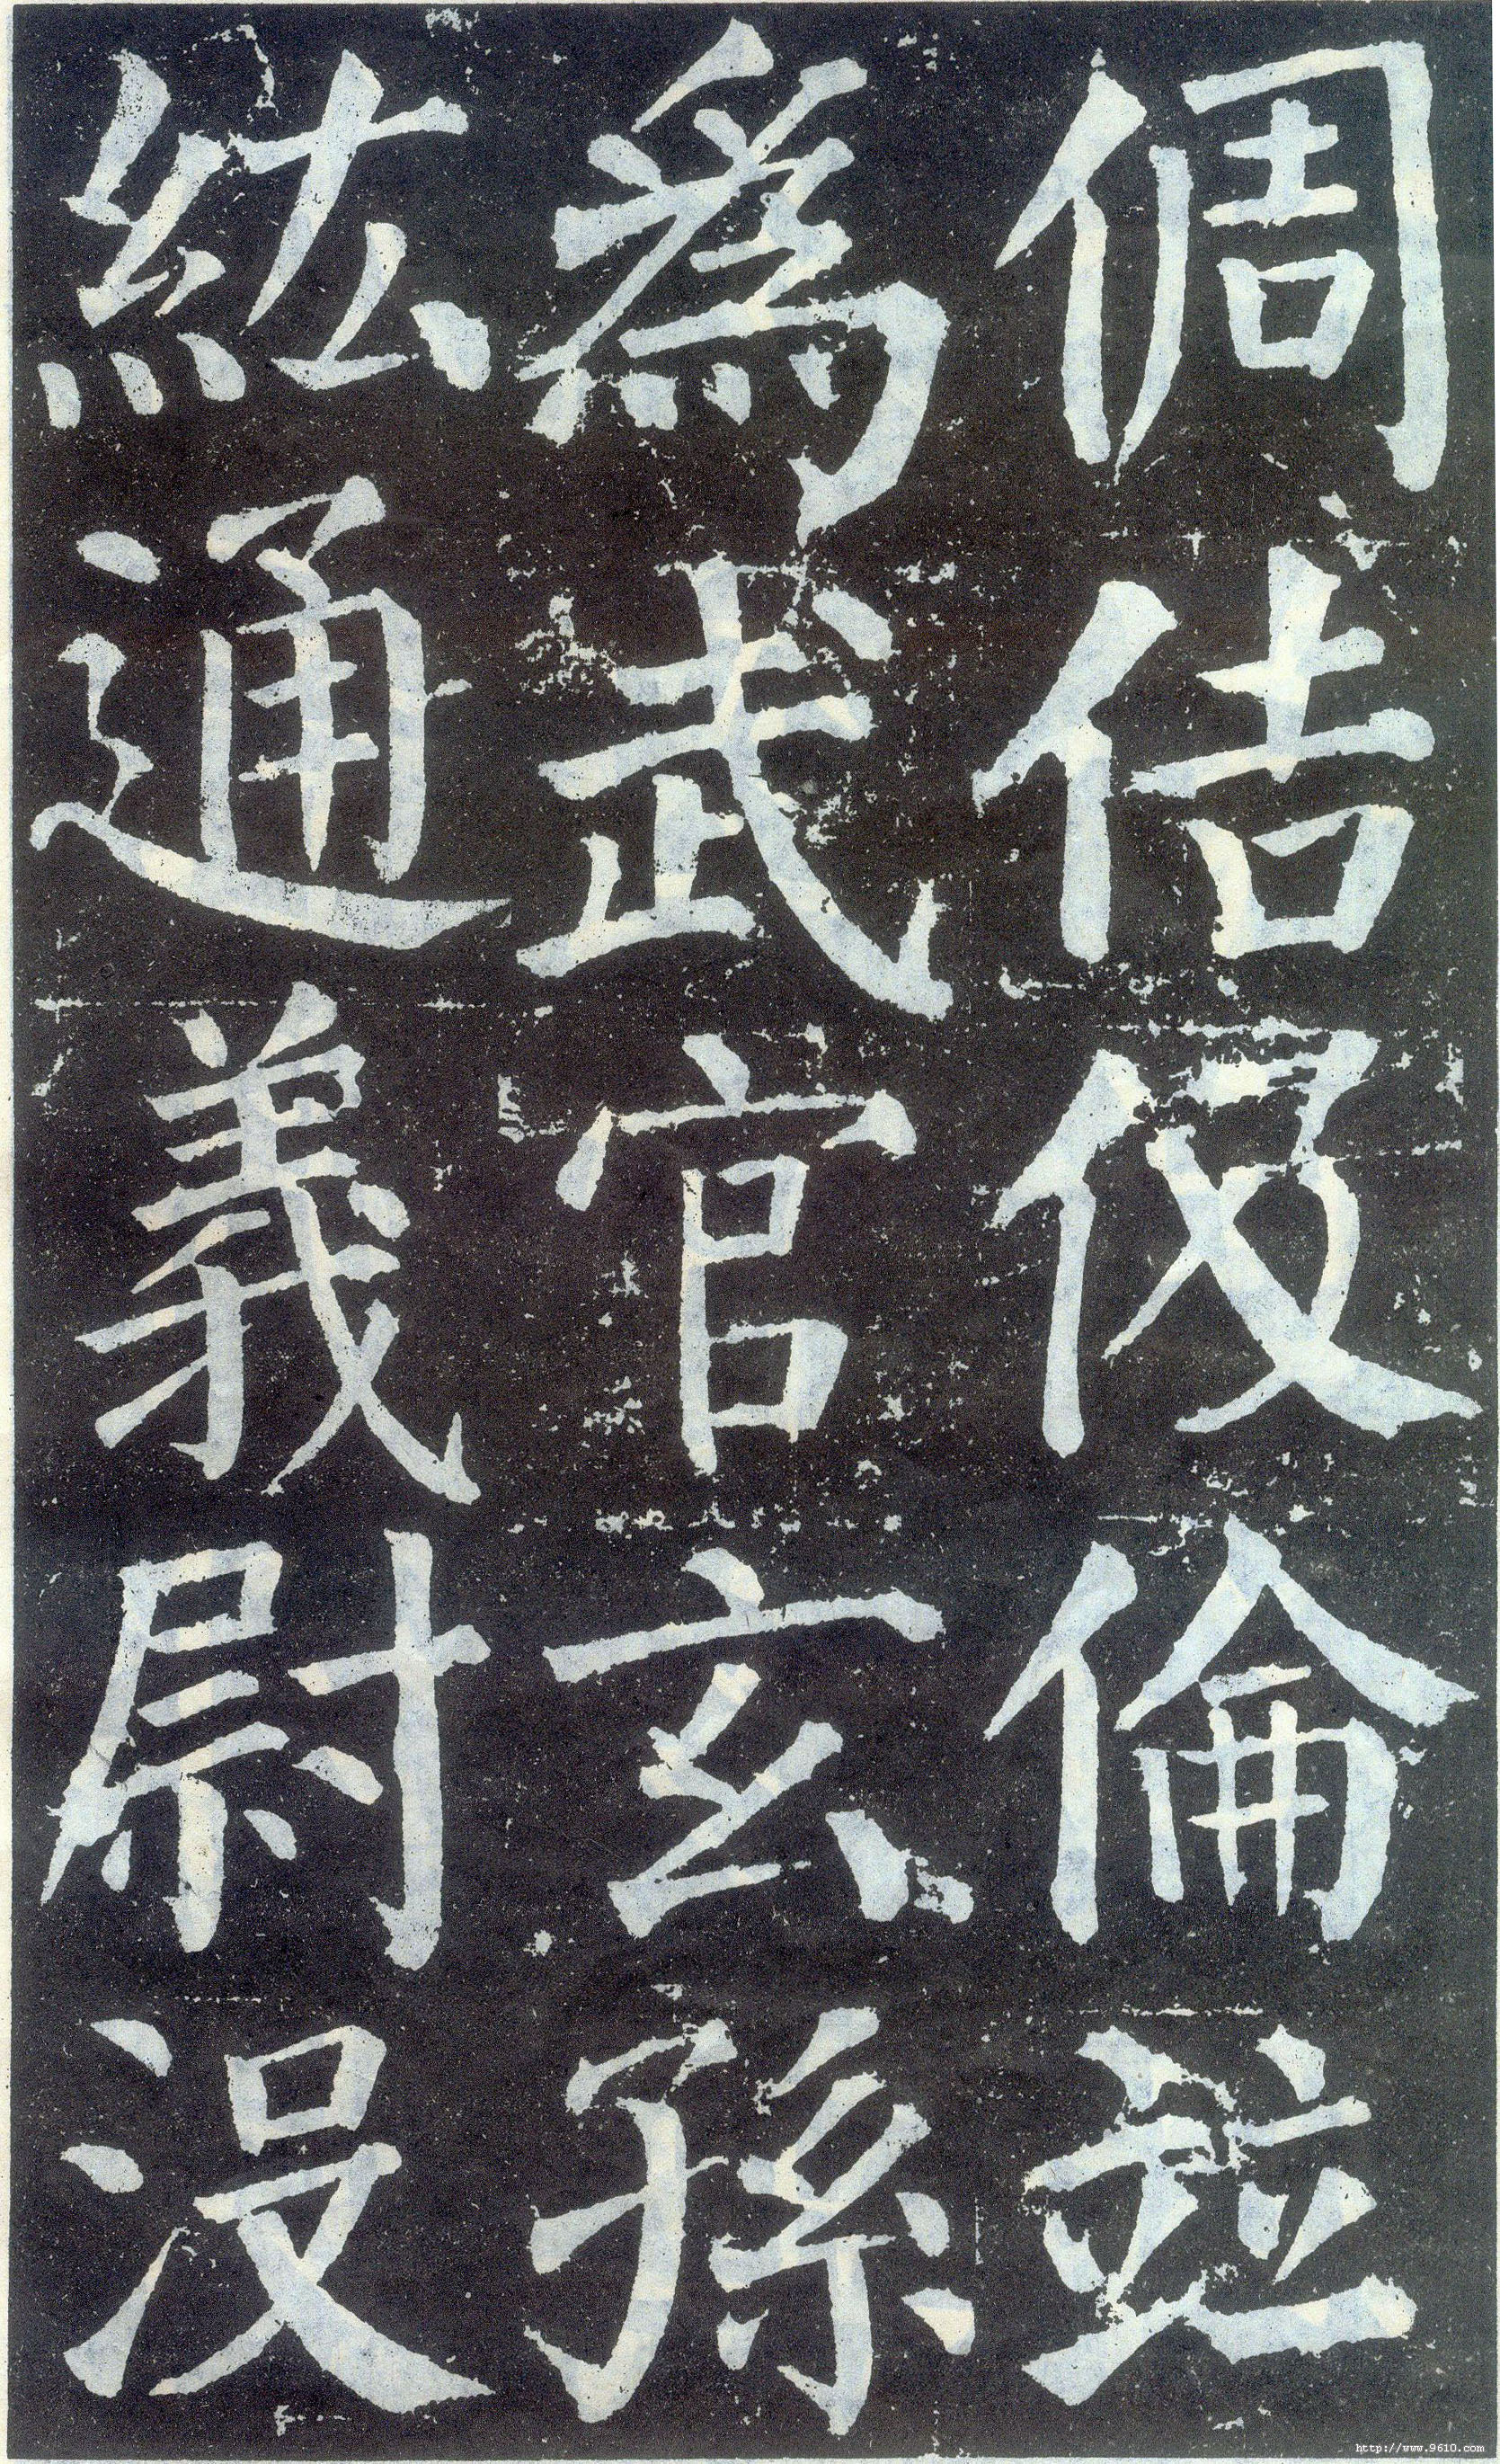 倜佶伋倫並
爲武官玄孫
紘通義尉没
http://www.9610.com